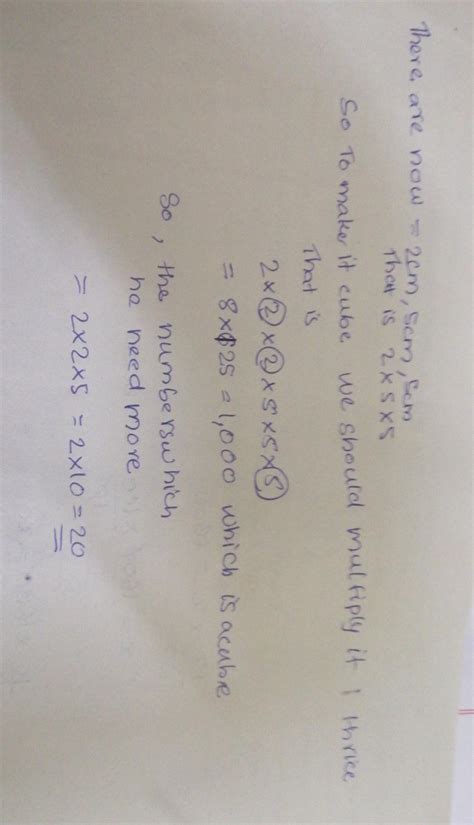 There are now = 2cm, 5cm, 5cm
That is 2 x 5 x 5
So To make it cube we should multiply it thrice
That is
2 x 2 x 2 x 5 x 5 x 5
= 8 x 125 = 1,000 which is a cube
So, the numbers which
he need more
= 2 x 2 x 5 = 2 x 10 = 20